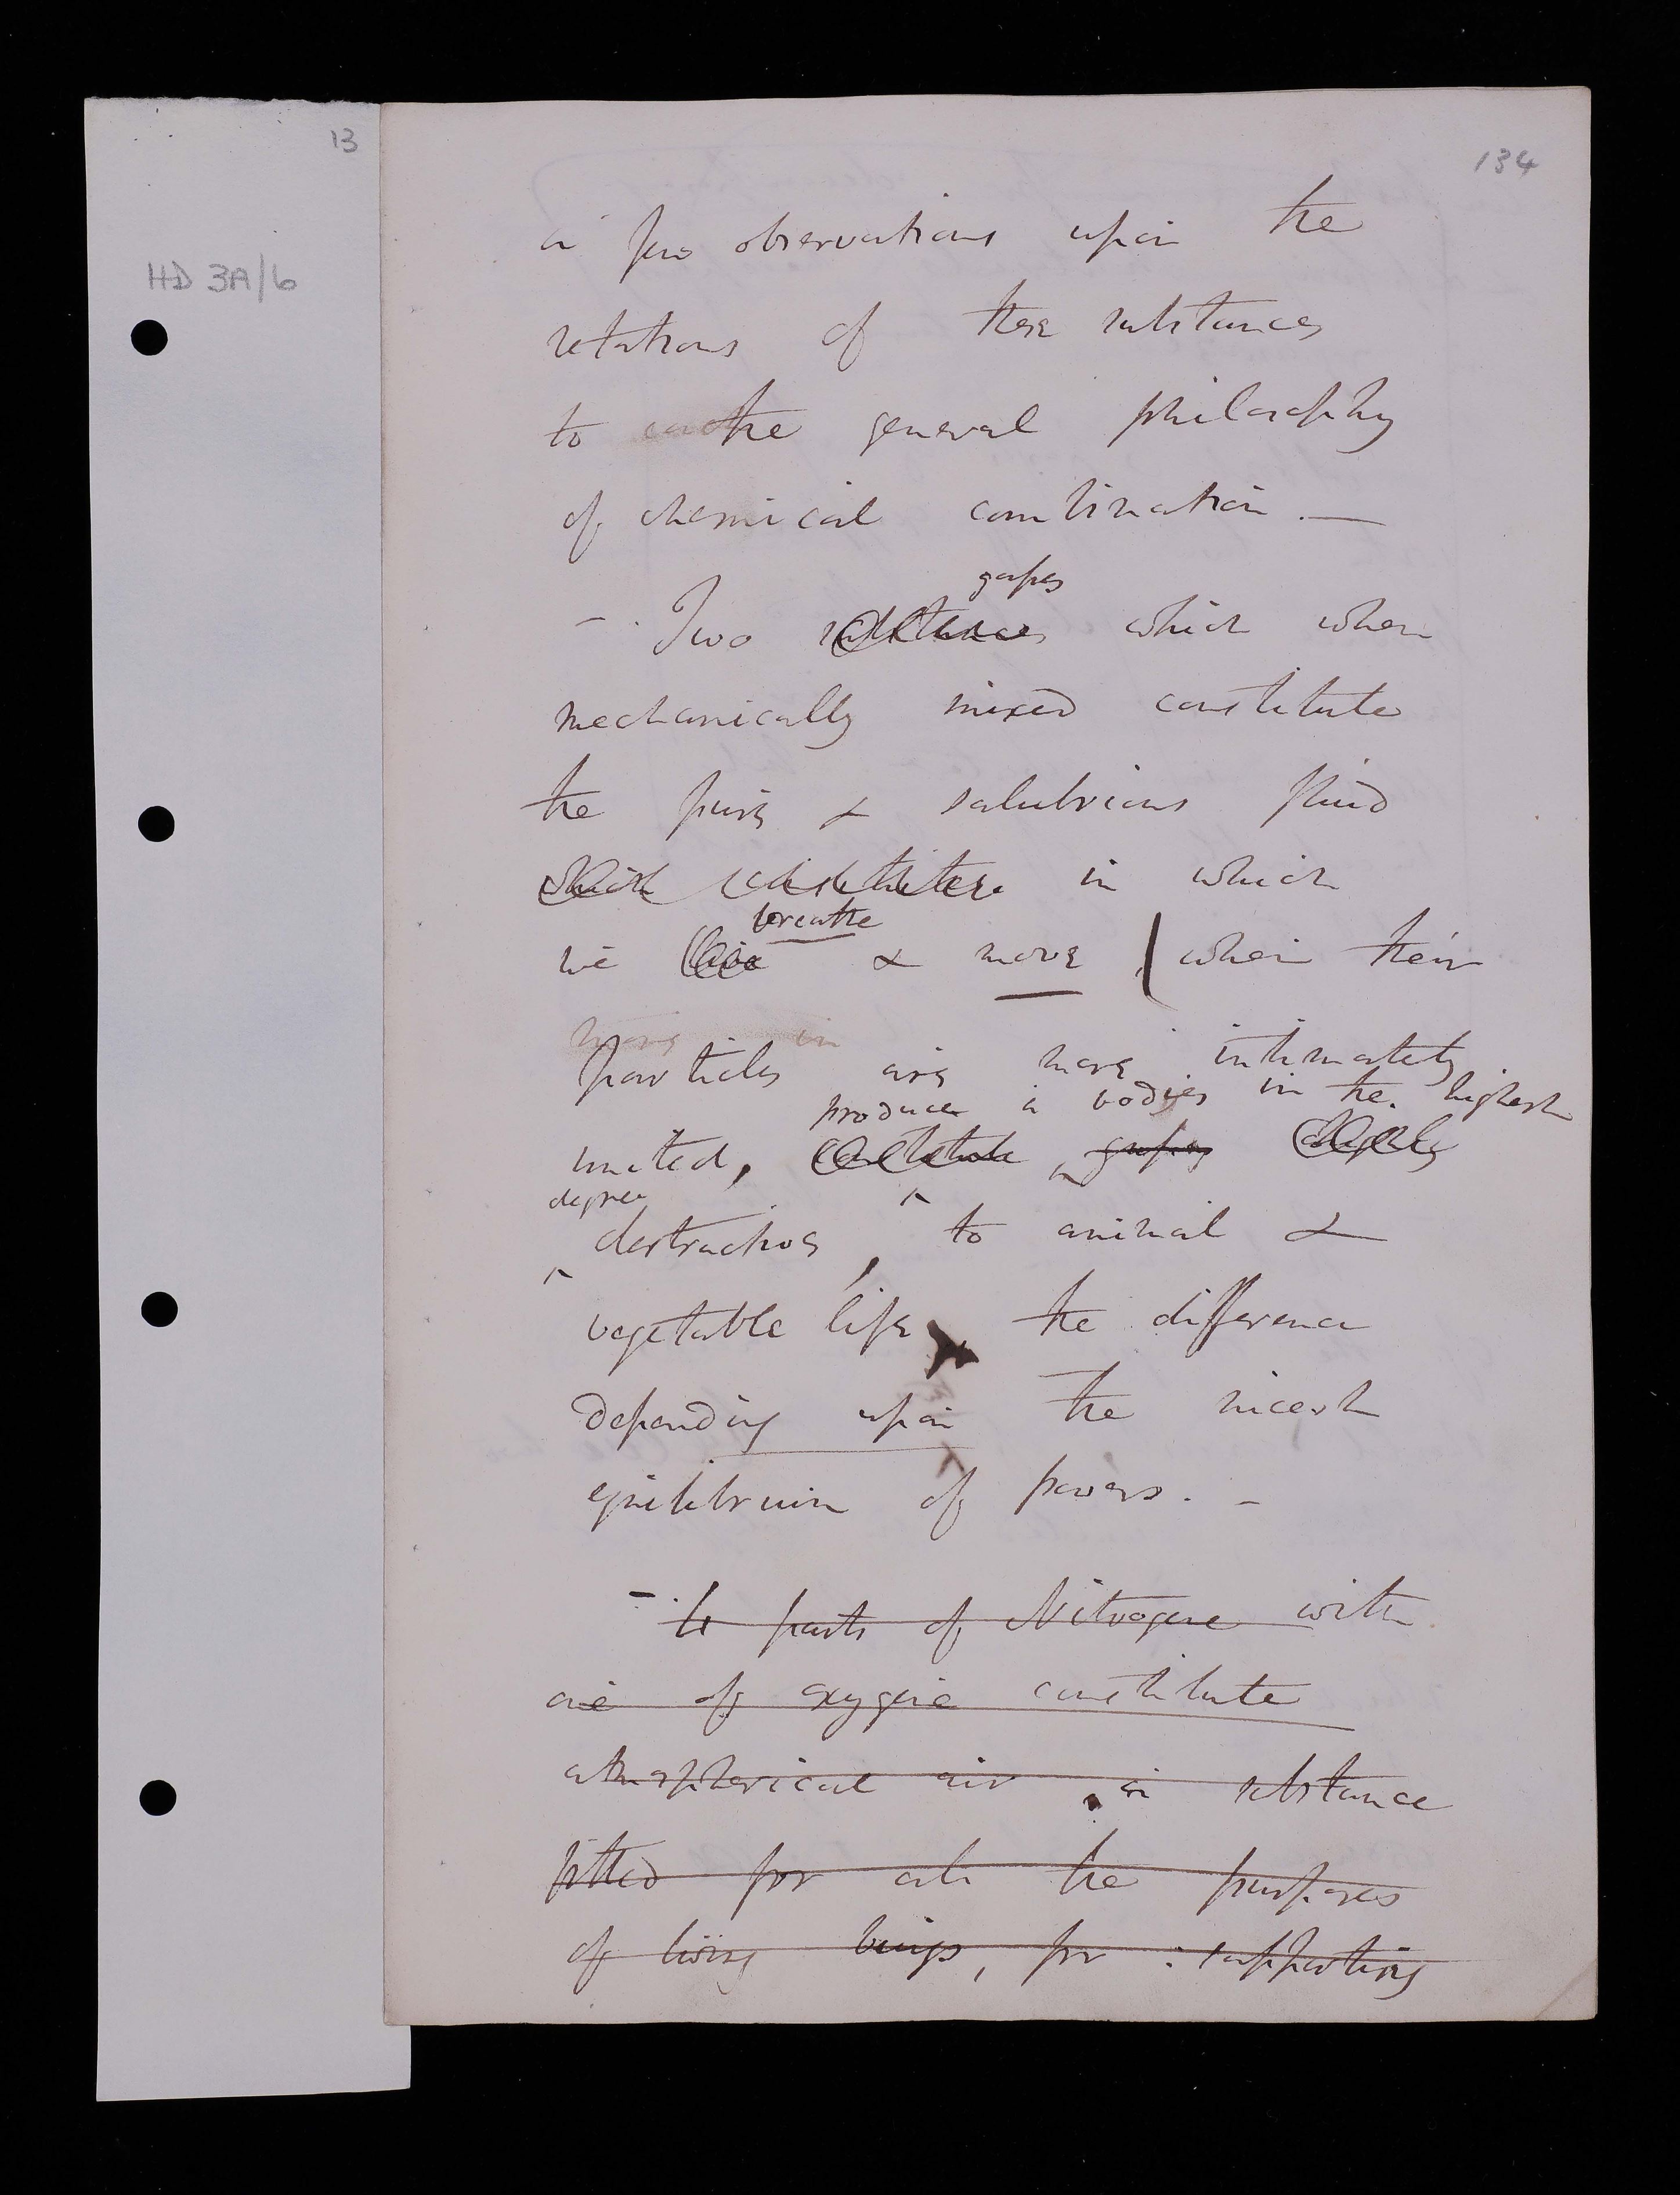 13
134
HD 3A/6
a few observations upon the
relations of these substances
to the general philosophy
of chemical combination. —
gases
– Two substances which when
mechanically mixed constitute
the pure & salubrious fluid
which constitutes in which
breathe
we live & move, when their
particles are more intimately
produce a bodies in the highest
united, constitute gases
degree
destructive, to animal &
vegetable life, the difference
depending upon the nicest
equilibrium of powers. –
– 4 parts of Nitrogene with
one of oxygene constitute
atmospherical air, a substance
fitted for all the purposes
of living beings, for supporting